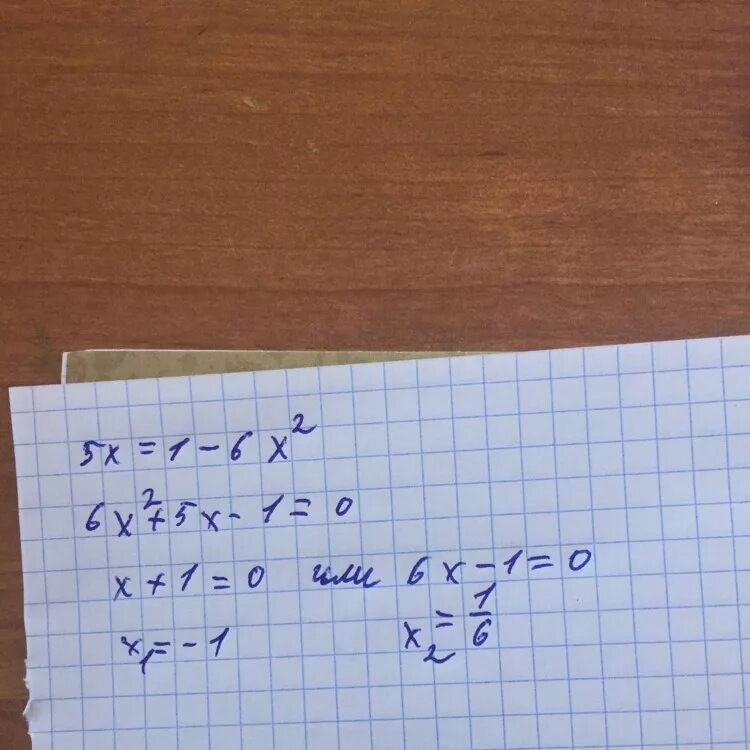 5x = 1 - 6x²
6x² + 5x - 1 = 0
x + 1 = 0 или 6x - 1 = 0
x₁ = -1 x₂ = 1/6